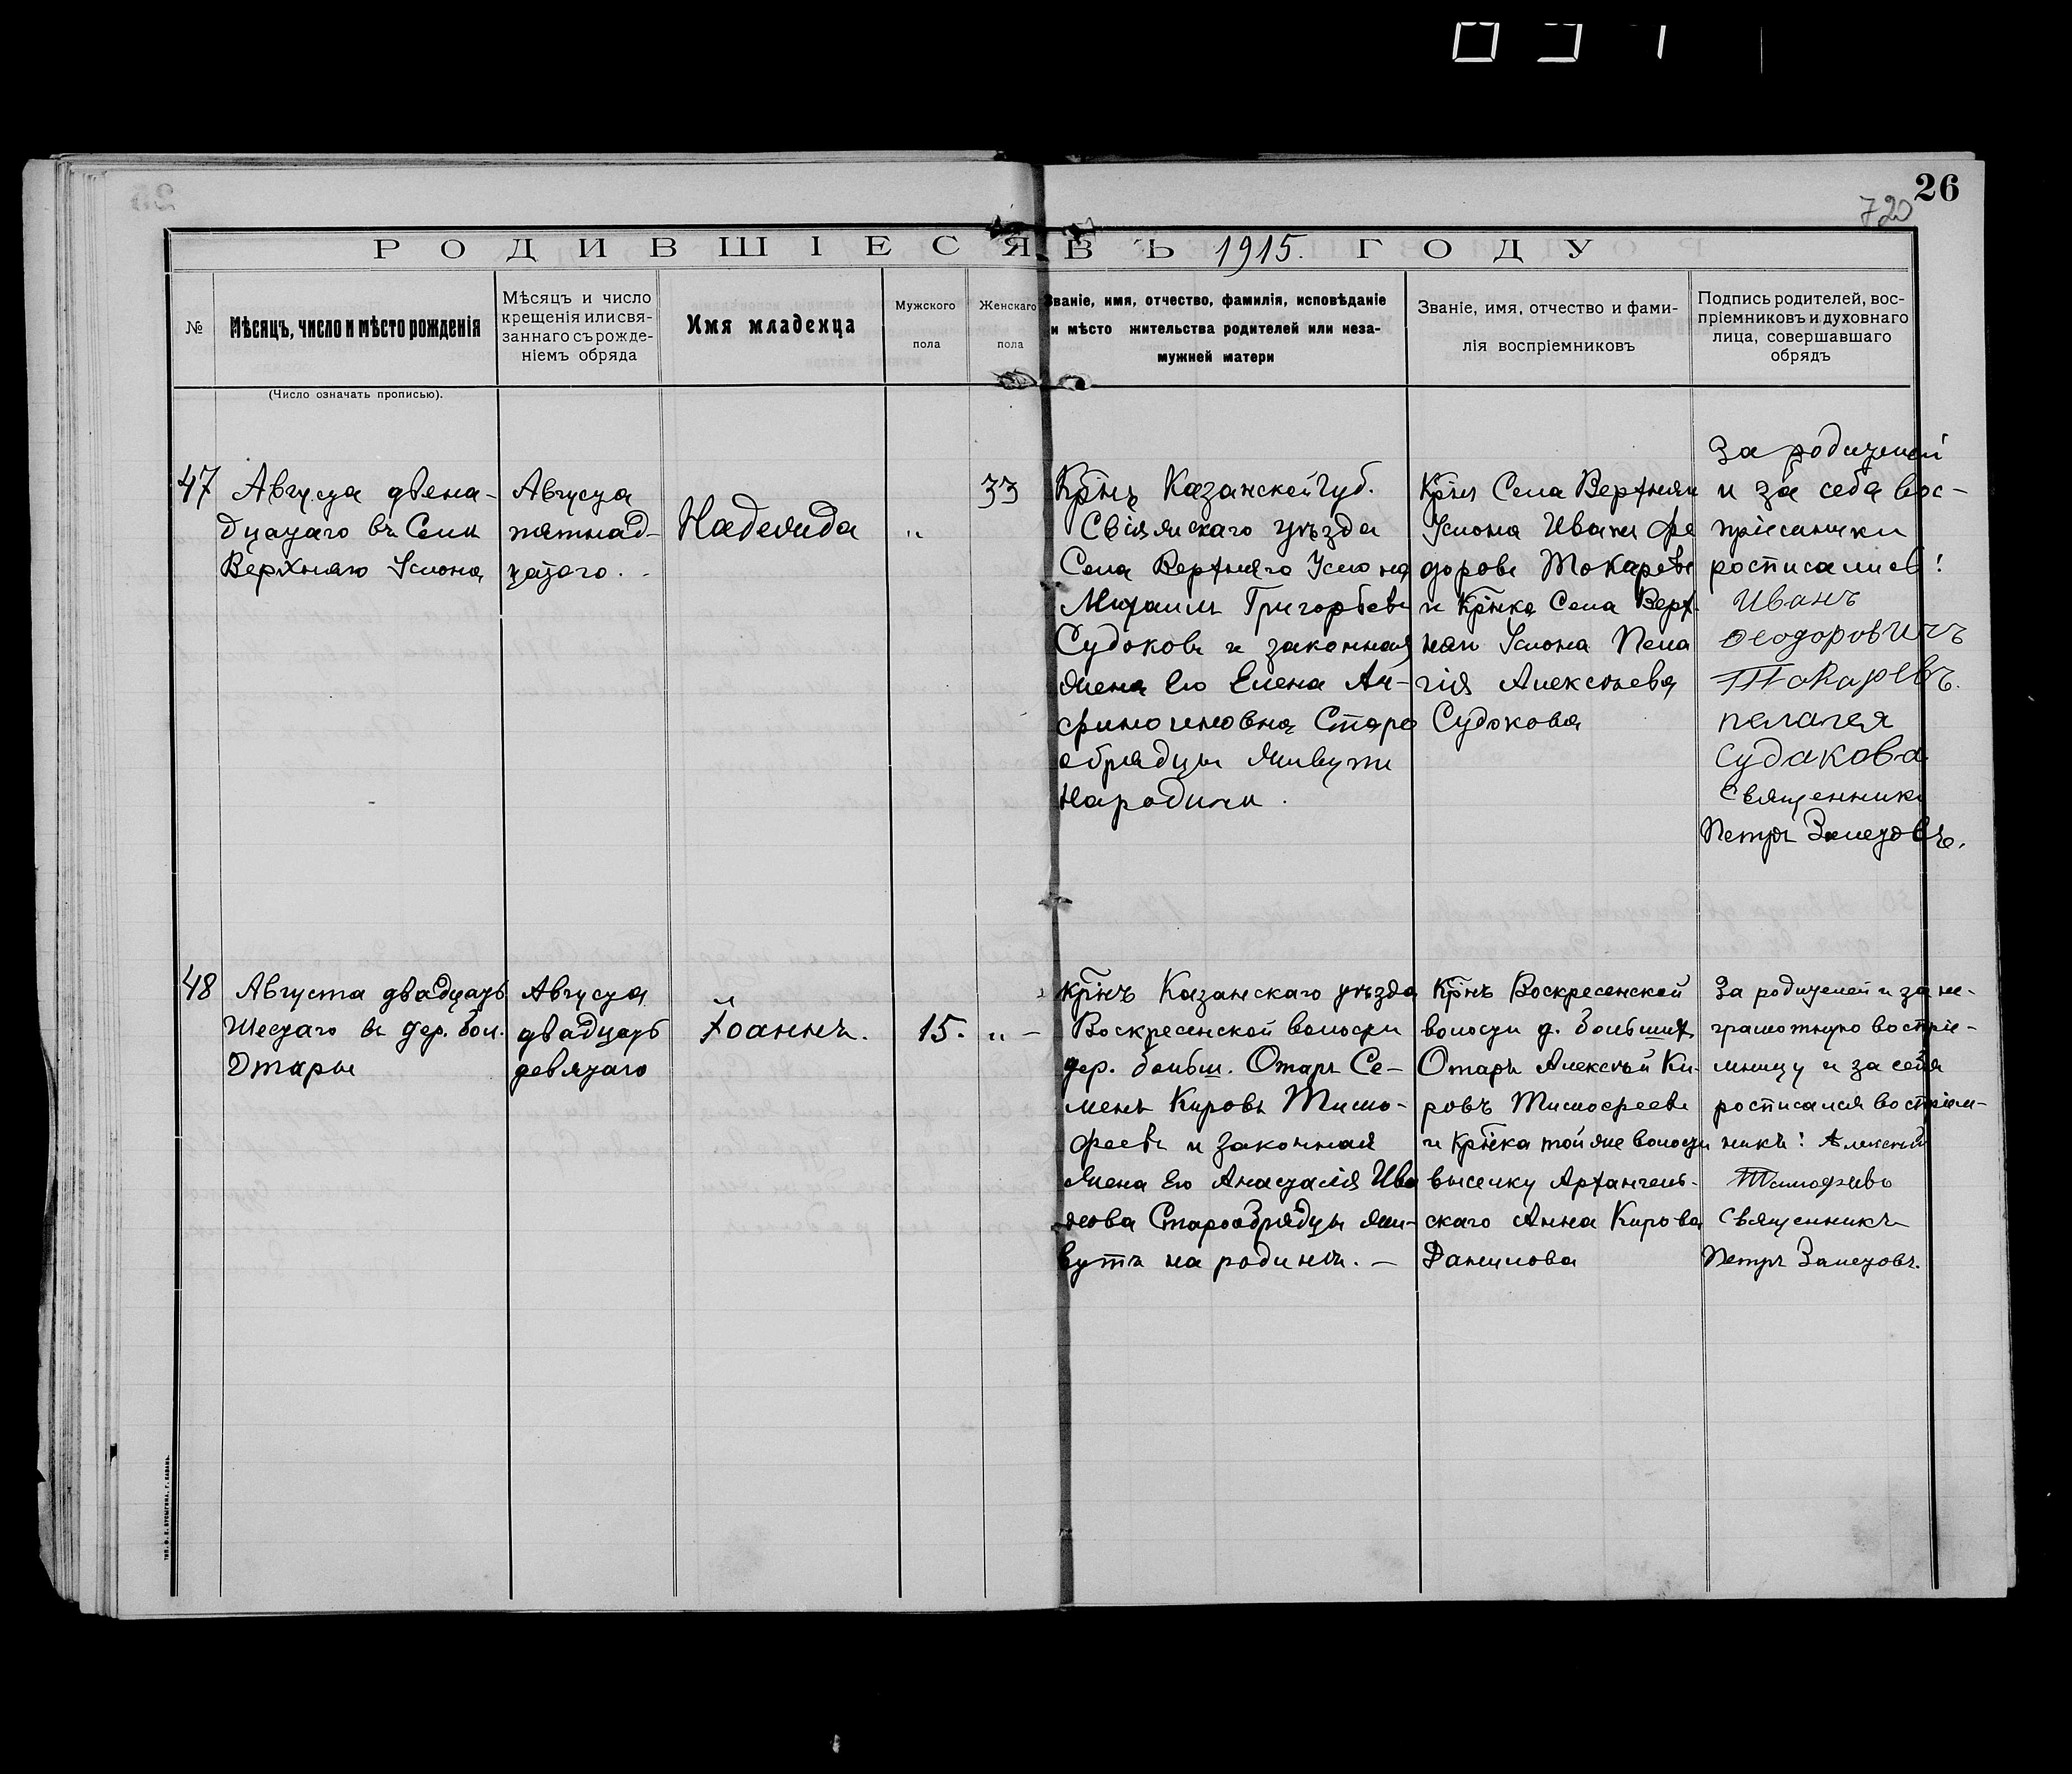 26
720
РОДИВШІЕСЯ ВЪ 1915. ГОДУ
№
Мѣсяцъ, число и мѣсто рожденія
(Число означать прописью).
Мѣсяцъ и число
крещенія или свя-
заннаго съ рожде-
ніемъ обряда
Имя младенца
Мужского
пола
Женскаго
пола
Званіе, имя, отчество, фамилія, исповѣданіе
и мѣсто жительства родителей или неза-
мужней матери
Званіе, имя, отчество и фами-
лія воспріемниковъ
Подпись родителей, вос-
пріемниковъ и духовнаго
лица, совершавшаго
обрядъ
47
Августа двена-
дцатаго въ Селѣ
Верхняго Услона
Августа
пятнад-
цатаго.
Надежда
"
33
Крнъ Казанской губ.
Свіяжскаго уѣзда
Села Верхняго Услона
Михаилъ Григорьевъ
Судоковъ и законная
жена его Елена Ан-
фимогеновна Старо
обрядцы живутъ
на родинѣ.
Крнъ Села Верхняго
Услона Иванъ Фе
доровъ Токаревъ
и Крнка Села Верх-
няго Услона Пела
гія Алексѣева
Судокова
За родителей
и за себя вос-
пріемники
росписались:
Иванъ
Феодоровичъ
Токаревъ.
пелагея
Судакова
Священникъ
Петръ Залетовъ.
48
Августа двадцать
Шестаго въ дер. бол.
Отары
Августа
двадцать
девятаго
Іоаннъ.
15.
" -
крнъ Казанскаго уѣзда
Воскресенской волости
дер. больш. Отаръ Се-
менъ Кировъ Тимо-
феевъ и законная
жена его Анастасія Ива
нова Старообрядцы жи-
вутъ на родинѣ. -
Крнъ Воскресенской
волости д. большихъ
Отаръ Алексѣй Ки-
ровъ Тимофеевъ
и Крнка той же волости
выселку Архангель-
скаго Анна Кирова
Данилова
За родителей и за не-
грамотную воспріе-
мницу и за себя
росписался воспріем-
никъ: Алексѣй
Тимофѣевъ
Священникъ
Петръ Залетовъ.